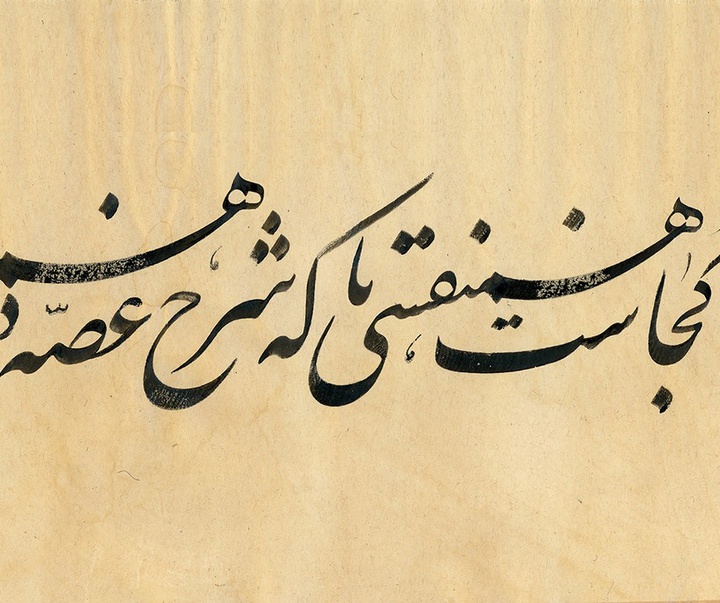 کجاست همنفسی تا که شرح غصّه دهم